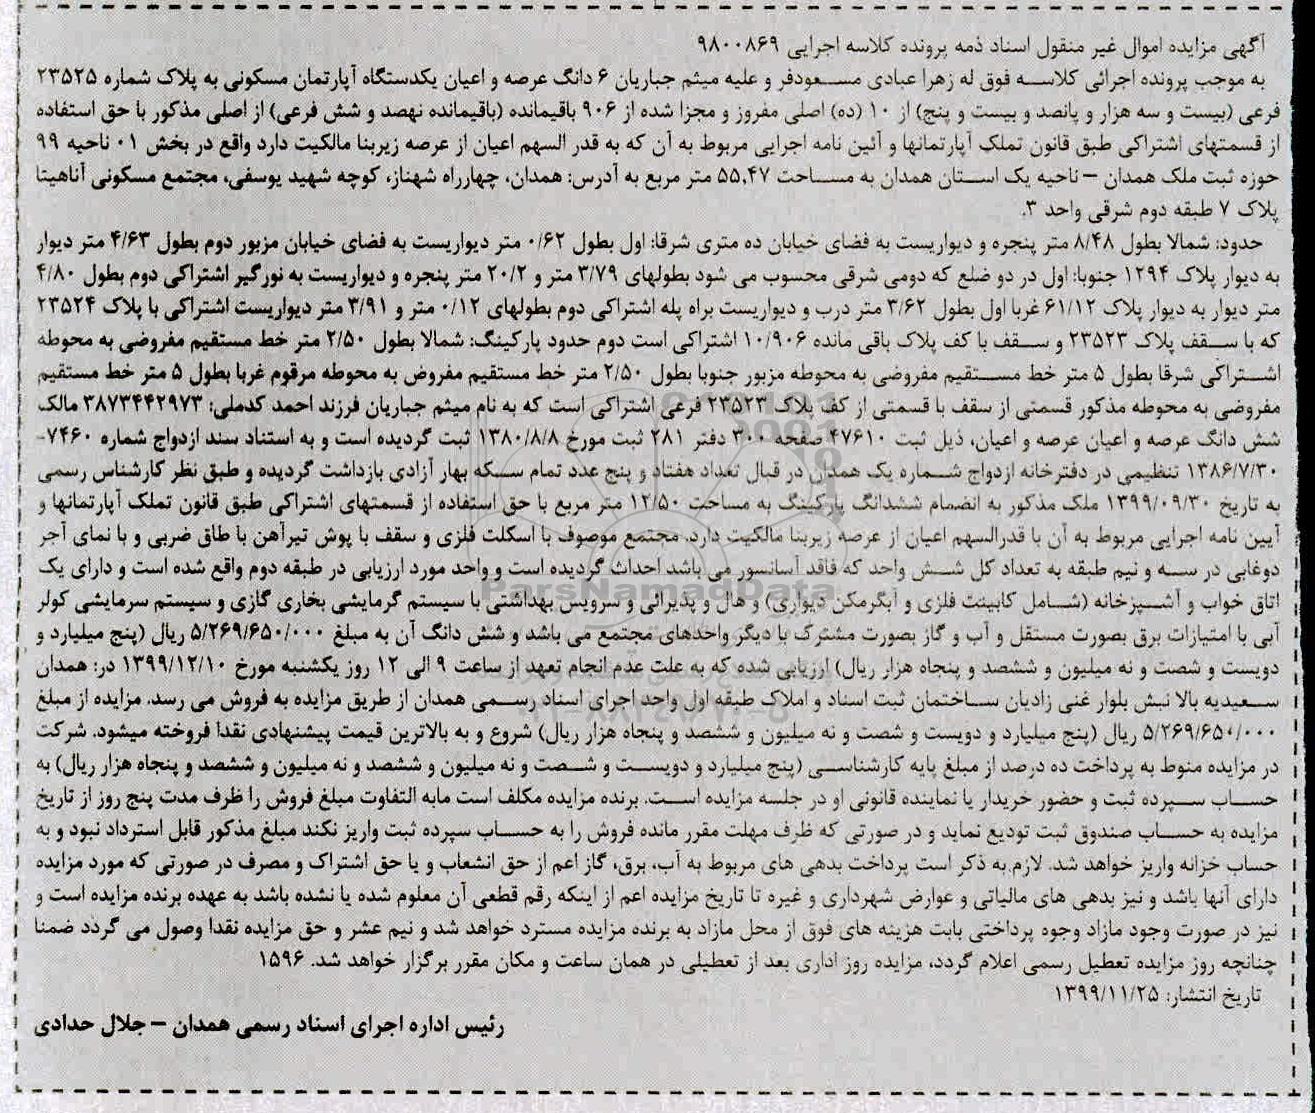 آگهی مزایده اموال غیر منقول اسناد ذمه پرونده کلاسه اجرایی ۹۸۰۰۸۶۹
به موجب پرونده اجرائی کلاسه فوق له زهرا عبادی مسعودفر و علیه میثم جباریان ۶ دانگ عرصه و اعیان یکدستگاه آپارتمان مسکونی به پلاک شماره ۲۳۵۲۵
فرعی (بیست و سه هزار و پانصد و بیست و پنج) از ۱۰ (ده) اصلی مفروز و مجزا شده از ۹۰۶ باقیمانده (باقیمانده نهصد و شش فرعی) از اصلی مذکور با حق استفاده
از قسمتهای اشتراکی طبق قانون تملک آپارتمانها و آئین نامه اجرایی مربوط به آن که به قدر السهم اعیان از عرصه زیربنا مالکیت دارد واقع در بخش ۰۱ ناحیه ۹۹
حوزه ثبت ملک همدان – ناحیه یک استان همدان به مساحت ۵۵,۴۷ متر مربع به آدرس: همدان، چهارراه شهناز، کوچه شهید یوسفی، مجتمع مسکونی آناهیتا
پلاک ۷ طبقه دوم شرقی واحد ۳.
حدود: شمالا بطول ۸/۴۸ متر پنجره و دیواریست به فضای خیابان ده متری شرقا: اول بطول ۰/۶۲ متر دیواریست به فضای خیابان مزبور دوم بطول ۴/۶۳ متر دیوار
به دیوار پلاک ۱۲۹۴ جنوبا: اول در دو ضلع که دومی شرقی محسوب می شود بطولهای ۳/۷۹ متر و ۲۰/۲ متر پنجره و دیواریست به نورگیر اشتراکی دوم بطول ۴/۸۰
متر دیوار به دیوار پلاک ۶۱/۱۲ غربا اول بطول ۳/۶۲ متر درب و دیواریست براه پله اشتراکی دوم بطولهای ۰/۱۲ متر و ۳/۹۱ متر دیواریست اشتراکی با پلاک ۲۳۵۲۴
که با سقف پلاک ۲۳۵۲۳ و سقف با کف پلاک باقی مانده ۱۰/۹۰۶ اشتراکی است دوم حدود پارکینگ: شمالا بطول ۲/۵۰ متر خط مستقیم مفروضی به محوطه
اشتراکی شرقا بطول ۵ متر خط مستقیم مفروضی به محوطه مزبور جنوبا بطول ۲/۵۰ متر خط مستقیم مفروض به محوطه مرقوم غربا بطول ۵ متر خط مستقیم
مفروضی به محوطه مذکور قسمتی از سقف با قسمتی از کف پلاک ۲۳۵۲۳ فرعی اشتراکی است که به نام میثم جباریان فرزند احمد کدملی: ۳۸۷۳۴۴۲۹۷۳ مالک
شش دانگ عرصه و اعیان عرصه و اعیان، ذیل ثبت ۴۷۶۱۰ صفحه ۳۰۰ دفتر ۲۸۱ ثبت مورخ ۱۳۸۰/۸/۸ ثبت گردیده است و به استناد سند ازدواج شماره ۷۴۶۰-
۱۳۸۶/۷/۳۰ تنظیمی در دفترخانه ازدواج شماره یک همدان در قبال تعداد هفتاد و پنج عدد تمام سکه بهار آزادی بازداشت گردیده و طبق نظر کارشناس رسمی
به تاریخ ۱۳۹۹/۰۹/۳۰ ملک مذکور به انضمام ششدانگ پارکینگ به مساحت ۱۲/۵۰ متر مربع با حق استفاده از قسمتهای اشتراکی طبق قانون تملک آپارتمانها و
آیین نامه اجرایی مربوط به آن با قدرالسهم اعیان از عرصه زیربنا مالکیت دارد. مجتمع موصوف با اسکلت فلزی و سقف با پوش تیرآهن با طاق ضربی و با نمای آجر
دوغابی در سه و نیم طبقه به تعداد کل شش واحد که فاقد آسانسور می باشد احداث گردیده است و واحد مورد ارزیابی در طبقه دوم واقع شده است و دارای یک
اتاق خواب و آشپزخانه (شامل کابینت فلزی و آبگرمکن دیواری) و هال و پذیرائی و سرویس بهداشتی با سیستم گرمایشی بخاری گازی و سیستم سرمایشی کولر
آبی با امتیازات برق بصورت مستقل و آب و گاز بصورت مشترک با دیگر واحدهای مجتمع می باشد و شش دانگ آن به مبلغ ۵/۲۶۹/۶۵۰/۰۰۰ ریال (پنج میلیارد و
دویست و شصت و نه میلیون و ششصد و پنجاه هزار ریال) ارزیابی شده که به علت عدم انجام تعهد از ساعت ۹ الی ۱۲ روز یکشنبه مورخ ۱۳۹۹/۱۲/۱۰ در: همدان
سعیدیه بالا نبش بلوار غنی زادیان ساختمان ثبت اسناد و املاک طبقه اول واحد اجرای اسناد رسمی همدان از طریق مزایده به فروش می رسد. مزایده از مبلغ
۵/۲۶۹/۶۵۰/۰۰۰ ریال (پنج میلیارد و دویست و شصت و نه میلیون و ششصد و پنجاه هزار ریال) شروع و به بالاترین قیمت پیشنهادی نقدا فروخته میشود. شرکت
در مزایده منوط به پرداخت ده درصد از مبلغ پایه کارشناسی (پنج میلیارد و دویست و شصت و نه میلیون و ششصد و نه میلیون و ششصد و پنجاه هزار ریال) به
حساب سپرده ثبت و حضور خریدار یا نماینده قانونی او در جلسه مزایده است. برنده مزایده مکلف است مابه التفاوت مبلغ فروش را ظرف مدت پنج روز از تاریخ
مزایده به حساب صندوق ثبت تودیع نماید و در صورتی که ظرف مهلت مقرر مانده فروش را به حساب سپرده ثبت واریز نکند مبلغ مذکور قابل استرداد نبود و به
حساب خزانه واریز خواهد شد. لازم به ذکر است پرداخت بدهی های مربوط به آب، برق، گاز اعم از حق انشعاب و یا حق اشتراک و مصرف در صورتی که مورد مزایده
دارای آنها باشد و نیز بدهی های مالیاتی و عوارض شهرداری و غیره تا تاریخ مزایده اعم از اینکه رقم قطعی آن معلوم شده یا نشده باشد به عهده برنده مزایده است و
نیز در صورت وجود مازاد وجوه پرداختی بابت هزینه های فوق از محل مازاد به برنده مزایده مسترد خواهد شد و نیم عشر و حق مزایده نقدا وصول می گردد ضمنا
چنانچه روز مزایده تعطیل رسمی اعلام گردد، مزایده روز اداری بعد از تعطیلی در همان ساعت و مکان مقرر برگزار خواهد شد. ۱۵۹۶
تاریخ انتشار: ۱۳۹۹/۱۱/۲۵
رئیس اداره اجرای اسناد رسمی همدان – جلال حدادی
ParsNamadData